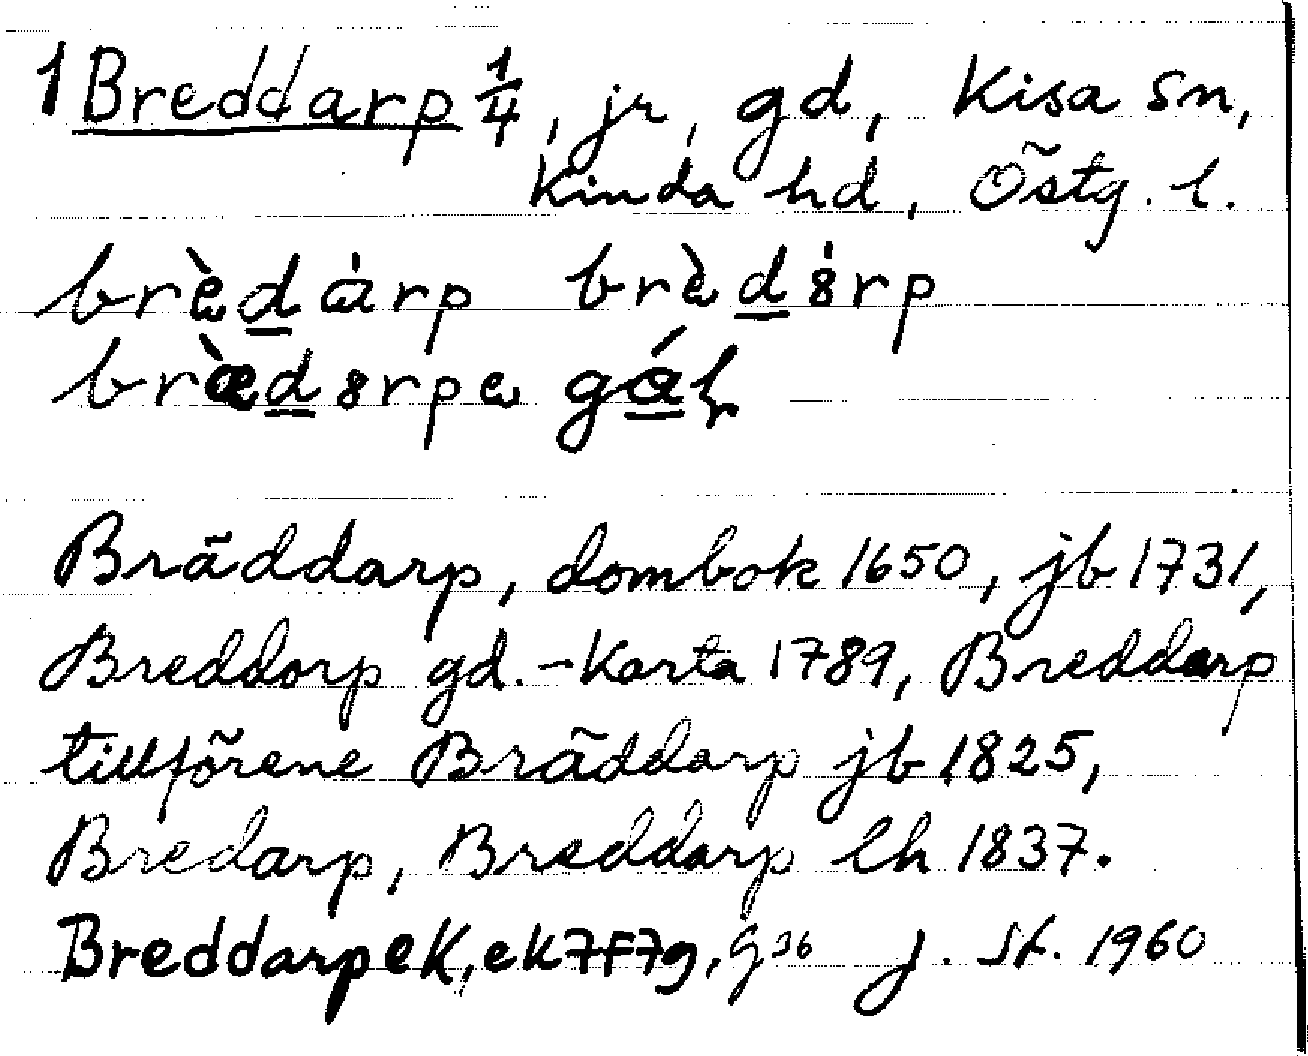 1 Breddarp 1/4, jr, gd, Kisa sn,
Kinda hd, Östg. l.
brèdàrp brèdȣrp
brædȣrpa gål
Bräddarp, dombok 1650, jb 1731,
Breddorp gd.-Karta 1789, Breddarp
tillförene Bräddarp jb 1825,
Bredarp, Breddarp lh 1837.
Breddarp eK, ek 7F7g, g36 J. St. 1960